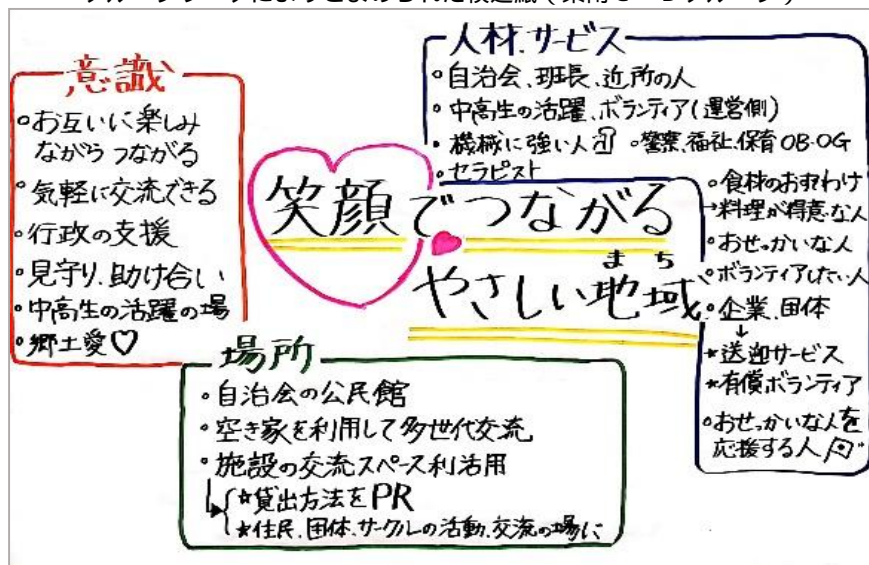 意識
・お互いに楽しみ
ながらつながる
・気軽に交流できる
・行政の支援
・見守り、助け合い
・中高生の活躍の場
・郷土愛♡
人材、サービス
・自治会、班長、近所の人
・中高生の活躍、ボランティア(運営側)
・機械に強い人 ・警察、福祉、保育OB・OG
・セラピスト
・食材のおすそわけ
→料理が得意な人
・おせっかいな人
・ボランティアしたい人
・企業、団体
↓
★送迎サービス
★有償ボランティア
・おせっかいな人を
応援する人
笑顔でつながる
まち
やさしい地域
場所
・自治会の公民館
・空き家を利用して多世代交流
・施設の交流スペース利活用
→★貸出方法をPR
★住民、団体、サークルの活動、交流の場に